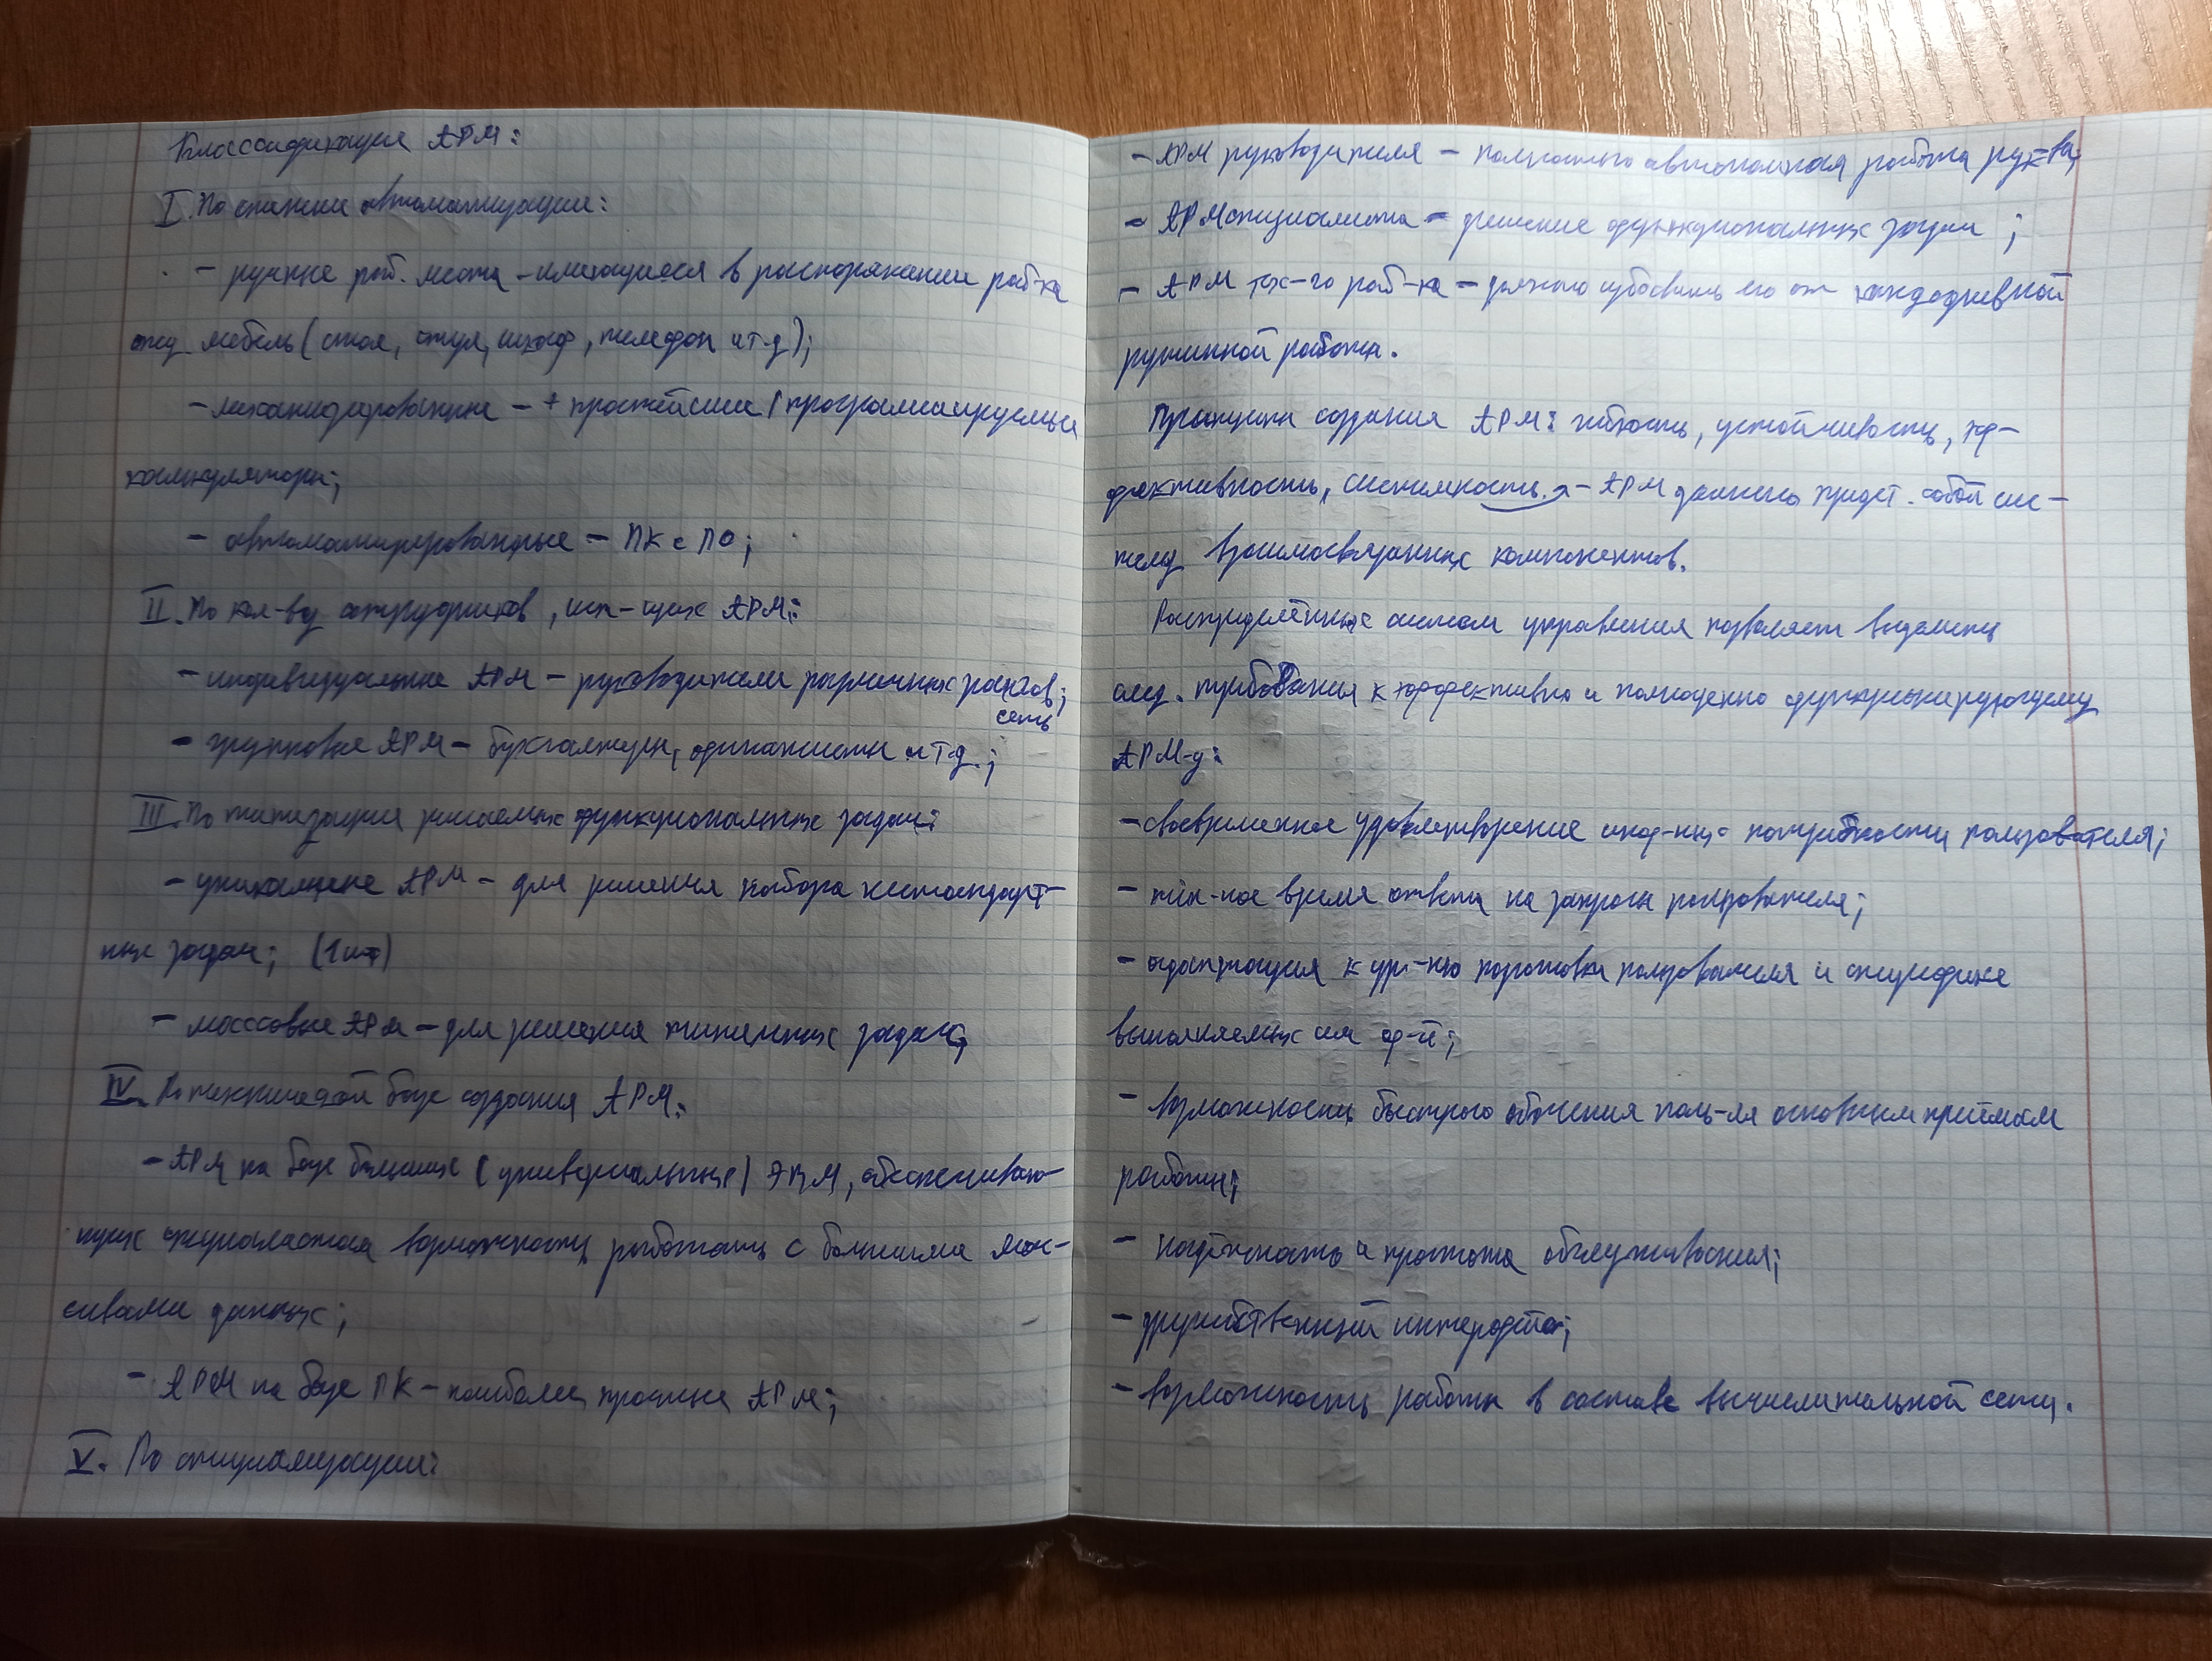 Классификация АРМ:
I. По степени автоматизации:
- ручные раб. места - имеющиеся в распоряжении раб-ка
мебель (стол, стул, шкаф, телефон и т.д);
- механизированные - + простейшие (программируемые
калькуляторы;
- автоматизированные - ПК с ПО;
II. По кол-ву сотрудников, исп-щих АРМ:
- индивидуальные АРМ - руководители различных рангов;
сеть
- групповые АРМ - бухгалтеры, финансисты и т.д.;
III. По типизации решаемых функциональных задач:
- уникальные АРМ - для решения набора нестандарт-
ных задач; (1 шт)
- массовые АРМ - для решения типичных задач;
IV. По технической базе создания АРМ:
- АРМ на базе больших (универсальных) ЭВМ, обеспечиваю-
щих специалистам возможность работать с большими мас-
сивами данных;
- АРМ на базе ПК - наиболее простые АРМ;
V. По специализации:
- АРМ руководителя - полностью автономная работа рук-ва;
- АРМ специалиста - решение функциональных задач;
- АРМ тех-го раб-ка - должно избавить его от каждодневной
рутинной работы.
Принципы создания АРМ: гибкость, устойчивость, эф-
фективность, системность -> - АРМ должно предст. собой сис-
тему взаимосвязанных компонентов.
Распределённые систем управления позволяет выделить
след. требования к эффективно и полноценно функционирующему
АРМ-у:
- своевременное удовлетворение инф-ных потребности пользователя;
- min-ное время ответа на запросы пользователя;
- адаптация к ур-ню подготовки пользователя и специфике
выполняемых им ф-й;
- возможность быстрого обучения поль-ля основным приёмам
работы;
- надёжность и простота обслуживания;
- дружественный интерфейс;
- возможность работы в составе вычислительной сети.